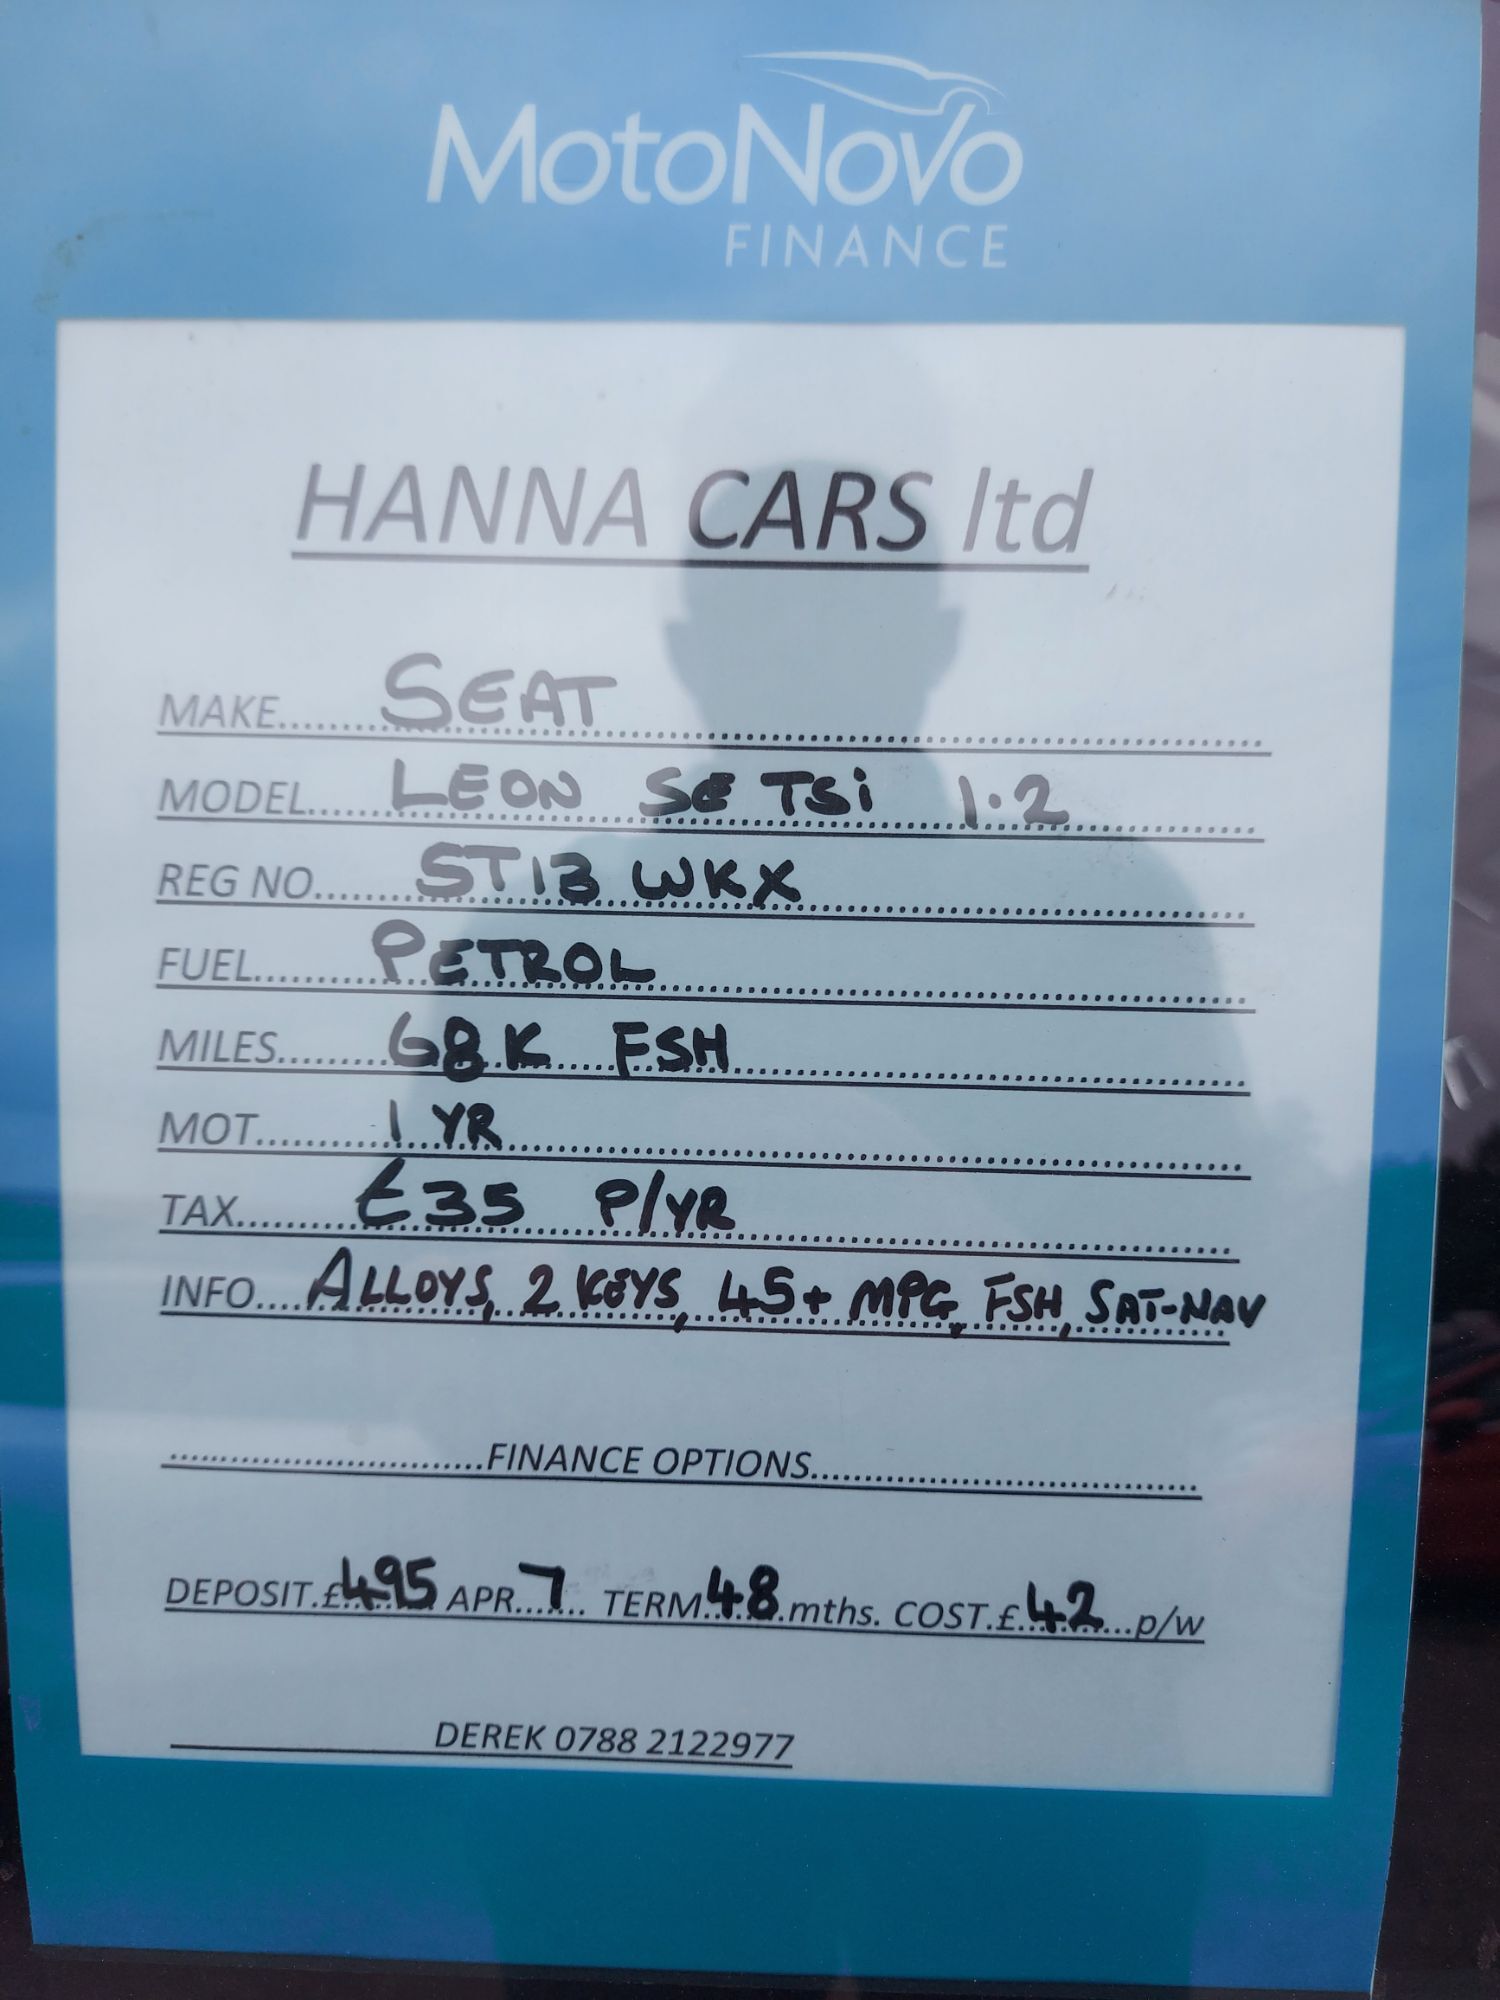 MotoNovo
FINANCE
HANNA CARS ltd
MAKE........SEAT
MODEL........LEON SE TSi 1.2
REG NO........ST13 WKX
FUEL........PETROL
MILES........68K FSH
MOT........1 YR
TAX........£35 P/YR
INFO....ALLOYS, 2 KEYS, 45+ MPG, FSH, SAT-NAV
........FINANCE OPTIONS........
DEPOSIT.£495 APR..7 TERM.48.mths. COST.£.42...p/w
DEREK 0788 2122977